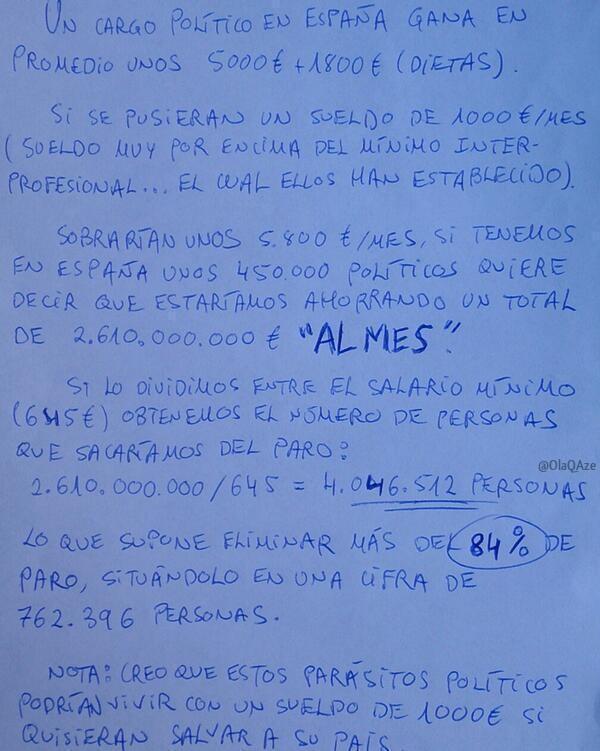 UN CARGO POLÍTICO EN ESPAÑA GANA EN
PROMEDIO UNOS 5000€ + 1800€ (DIETAS).
SI SE PUSIERAN UN SUELDO DE 1000€/MES
(SUELDO MUY POR ENCIMA DEL MÍNIMO INTER-
PROFESIONAL... EL CUAL ELLOS HAN ESTABLECIDO).
SOBRARÍAN UNOS 5.800 €/MES, SI TENEMOS
EN ESPAÑA UNOS 450.000 POLÍTICOS QUIERE
DECIR QUE ESTARÍAMOS AHORRANDO UN TOTAL
DE 2.610.000.000 € "AL MES".
SI LO DIVIDIMOS ENTRE EL SALARIO MÍNIMO
(645€) OBTENEMOS EL NÚMERO DE PERSONAS
QUE SACARÍAMOS DEL PARO:
@OlaQAze
2.610.000.000/645 = 4.046.512 PERSONAS
LO QUE SUPONE ELIMINAR MÁS DEL 84% DE
PARO, SITUÁNDOLO EN UNA CIFRA DE
762.396 PERSONAS.
NOTA: CREO QUE ESTOS PARÁSITOS POLÍTICOS
PODRÍAN VIVIR CON UN SUELDO DE 1000€ SI
QUISIERAN SALVAR A SU PAÍS